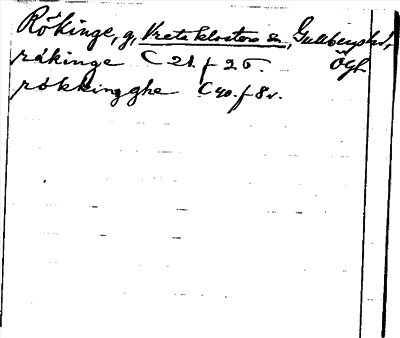 Rökinge, g, Vreta klosters sn, Gullbergs hd,
Ögl.
råkinge C 21. f 26.
rökkingghe C 40. f 8v.